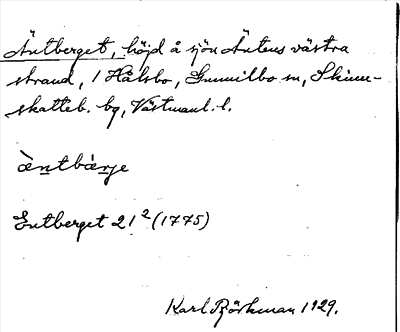 Äntberget, höjd å sjön Äntens västra
strand, i Hålsbo, Gunnilbo sn, Skinn-
skatteb. bg, Västmanl. l.
àntbàrje
Entberget 21² (1775)
Karl Björkman 1929.